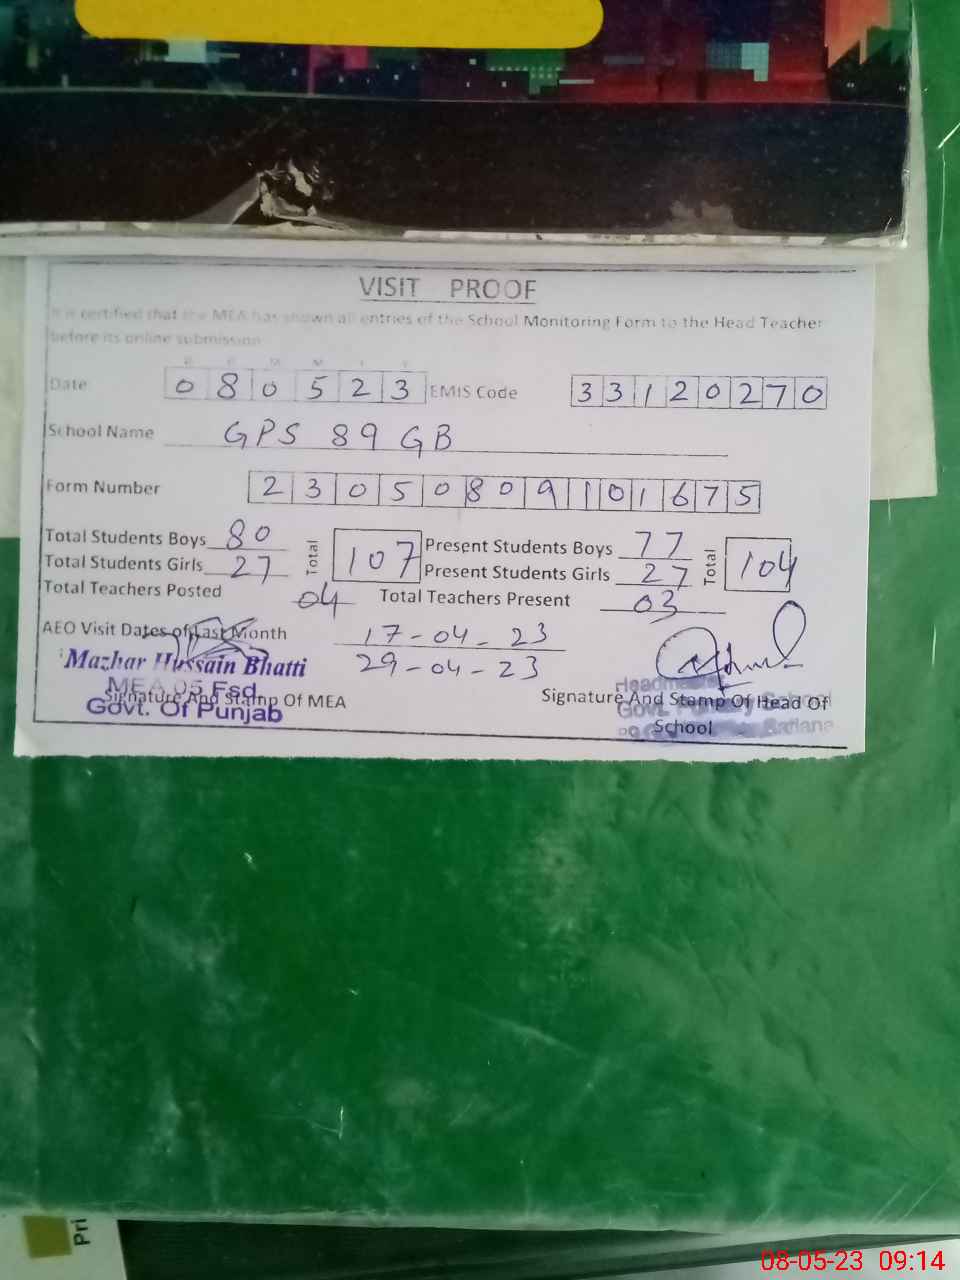 VISIT PROOF
It is certified that the MEA has shown all entries of the School Monitoring Form to the Head Teacher
before its online submission
D D M M Y Y
Date 0 8 0 5 2 3 EMIS Code 3 3 1 2 0 2 7 0
School Name GPS 89 GB
Form Number 2 3 0 5 0 8 0 9 1 0 1 6 7 5
Total Students Boys 80 Total 107 Present Students Boys 77 Total 104
Total Students Girls 27 Present Students Girls 27
Total Teachers Posted 04 Total Teachers Present 03
AEO Visit Dates of Last Month 17-04-23
29-04-23
Mazhar Hussain Bhatti
MEA 05 Fsd
Signature And Stamp Of MEA
Govt. Of Punjab
Headmaster
Signature And Stamp Of Head Of
School
Govt. Primary School
Satiana
Pri
08-05-23 09:14